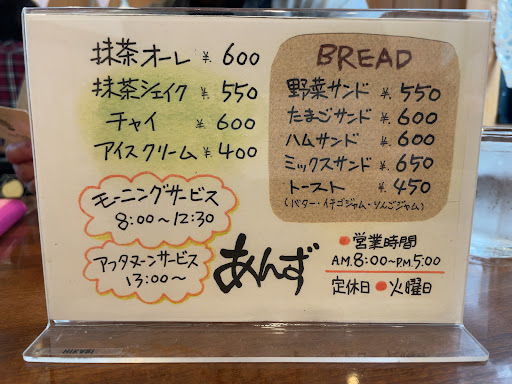 抹茶オーレ ¥ 600
抹茶シェイク ¥ 550
チャイ ¥ 600
アイスクリーム ¥ 400
モーニングサービス
8:00〜12:30
アフタヌーンサービス
13:00〜
BREAD
野菜サンド ¥ 550
たまごサンド ¥ 600
ハムサンド ¥ 600
ミックスサンド ¥ 650
トースト ¥ 450
(バター・イチゴジャム・りんごジャム)
あんず
●営業時間
A.M.8:00〜P.M.5:00
定休日●火曜日